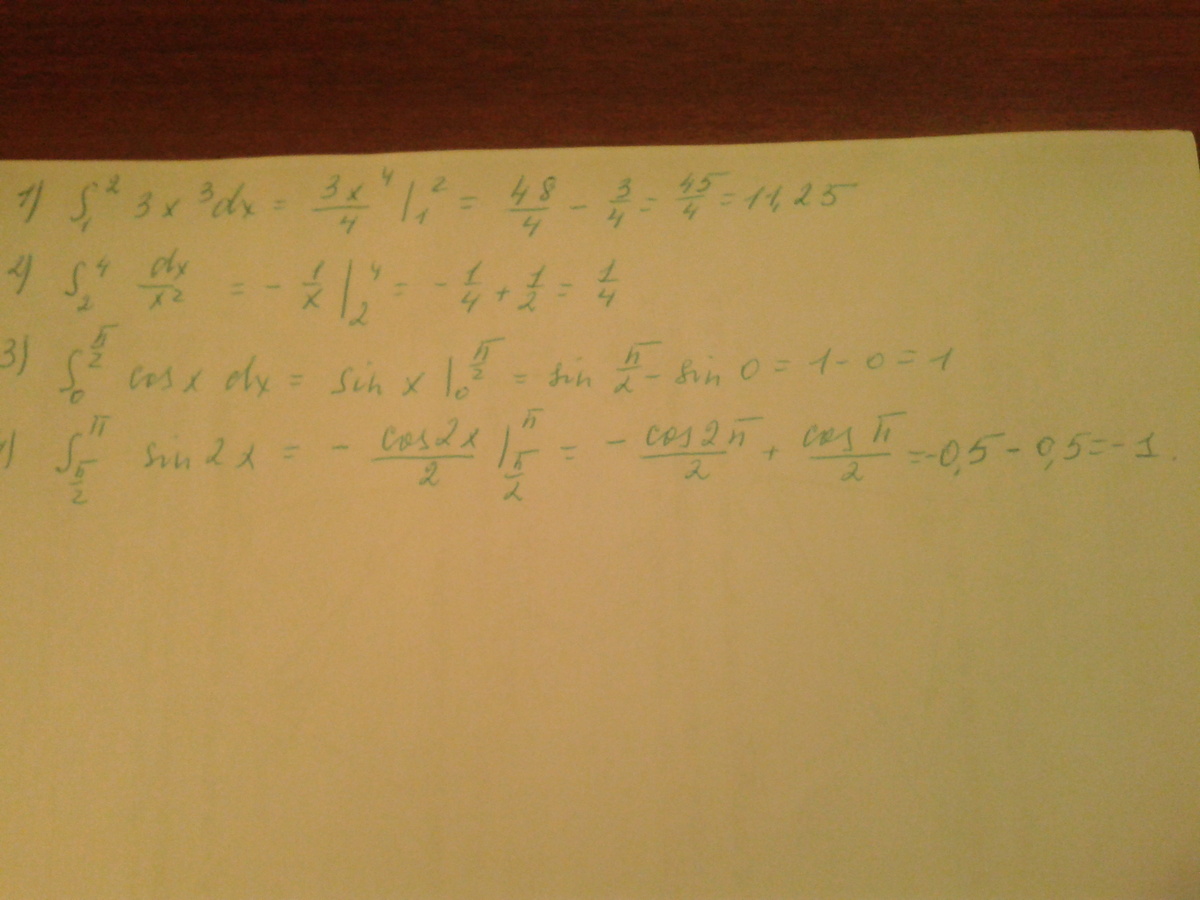 1) ∫₁² 3x³dx = 3x⁴/4 |₁² = 48/4 - 3/4 = 45/4 = 11,25
2) ∫₂⁴ dx/x² = - 1/x |₂⁴ = - 1/4 + 1/2 = 1/4
3) ∫₀^(π/2) cos x dx = sin x |₀^(π/2) = sin π/2 - sin 0 = 1 - 0 = 1
) ∫_(π/2)^π sin 2x = - cos2x/2 |_(π/2)^π = - cos2π/2 + cos π/2 = -0,5 - 0,5 = -1.